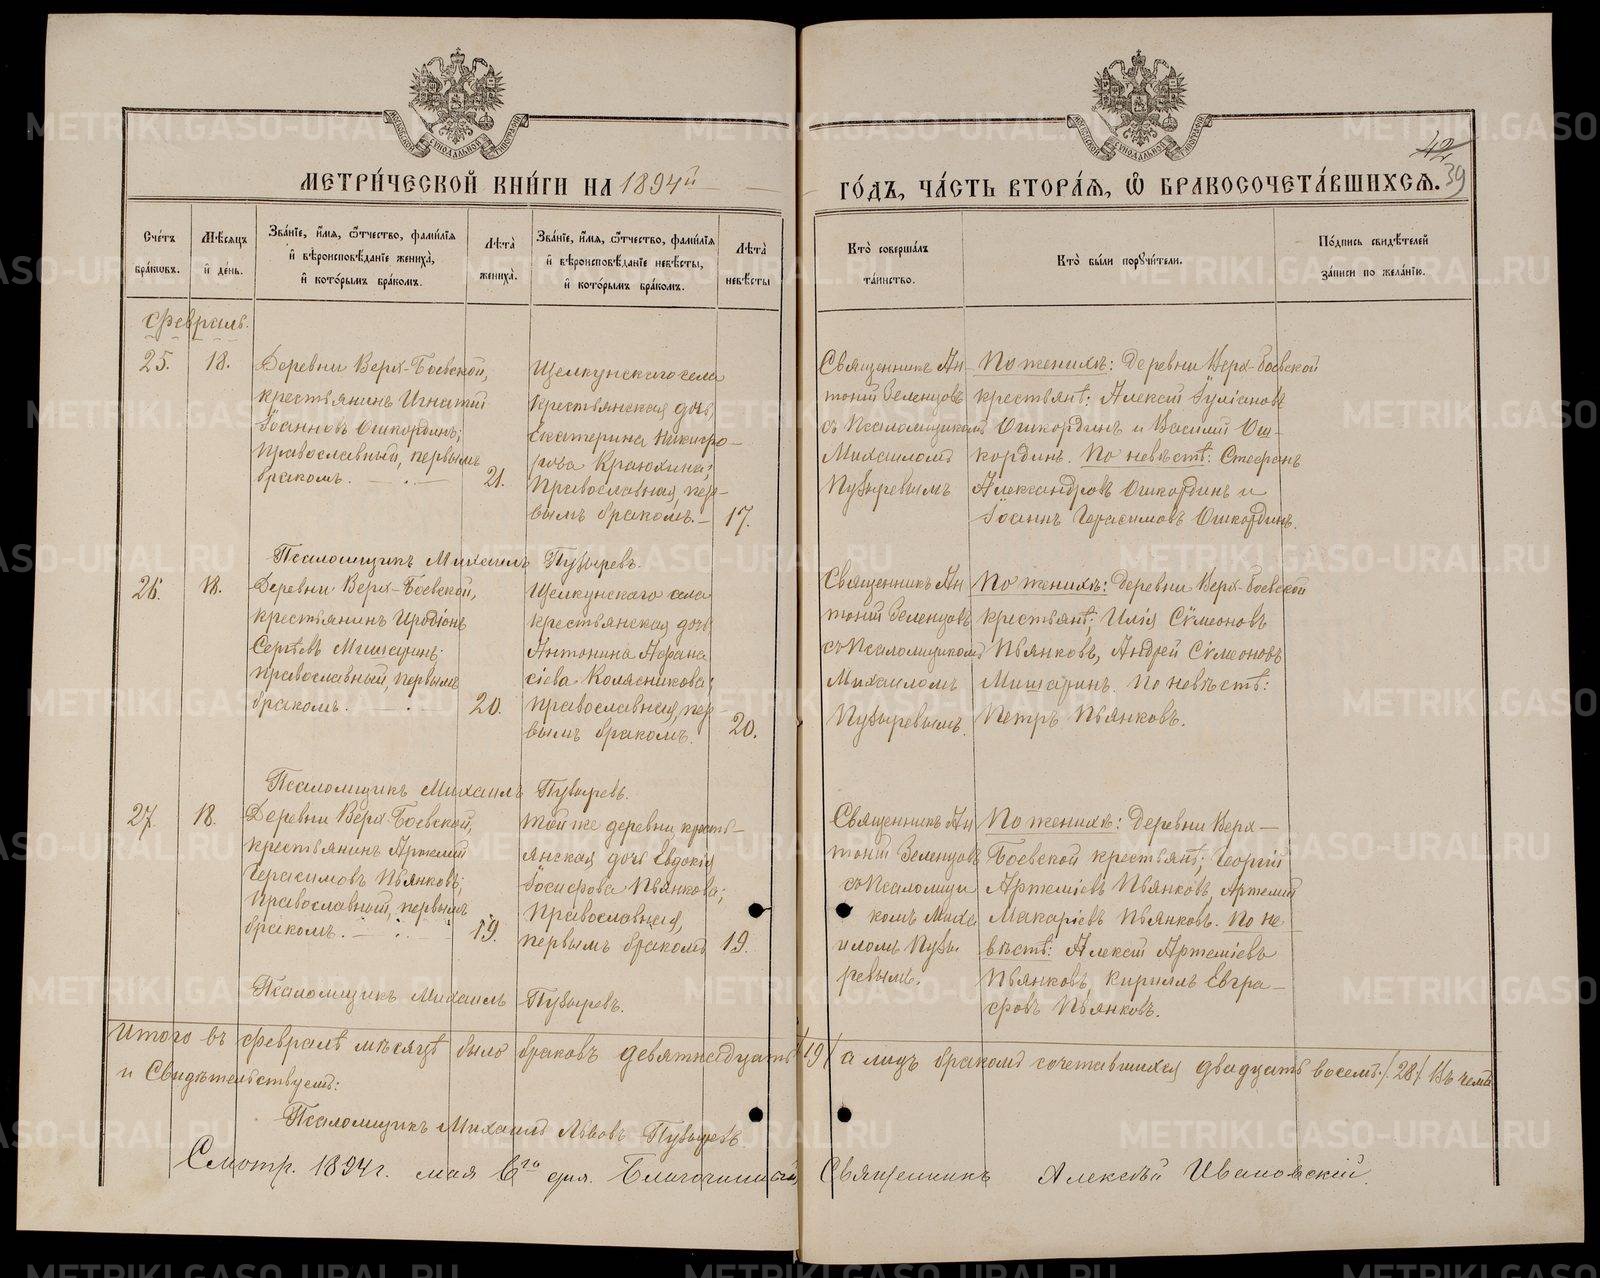 МЕТРИ́ЧЕСКОЙ КНИ́ГИ НА 1894й
ГО́ДЪ, ЧА́СТЬ ВТОРА́Я, Ѽ БРАКОСОЧЕТА́ВШИХСЯ.
42
39
Сче́тъ бра́ковъ.
Мѣ́сяцъ и́ де́нь.
Зва́нїе, и́мя, ѻ́тчество, фами́лїя и́ вѣроисповѣ́данїе жениха̀, и́ кото́рымъ бра́комъ.
Лѣта̀ жениха̀.
Зва́нїе, и́мя, ѻ́тчество, фами́лїя и́ вѣроисповѣ́данїе невѣ́сты, и́ кото́рымъ бра́комъ.
Лѣта̀ невѣ́сты
Кто̀ соверша́лъ та́инство.
Кто̀ бы́ли поручи́тели.
По́дпись свидѣ́телей за́писи по жела́нїю.
Февраль.
25.
18.
Деревни Верх-Боевской,
крестьянинъ Игнатій
Іоанновъ Ошкординъ;
православный, первымъ
бракомъ.
21.
Щелкунскаго села
крестьянская дочь,
Екатерина Никифо-
рова Краюхина;
Православная, пер-
вымъ бракомъ.
17.
Священникъ Ан-
тоній Зеленцовъ
съ Псаломщикомъ
Михаиломъ
Пузыревымъ
По женихѣ: деревни Верх-Боевской
крестьянѣ; Алексій Іуліановъ
Ошкординъ и Василій Ош-
кординъ. По невѣстѣ: Стефанъ
Александровъ Ошкординъ и
Іоаннъ Герасимовъ Ошкординъ.
Псаломщикъ Михаилъ Пузыревъ.
26.
18.
Деревни Верх-Боевской,
крестьянинъ Иродіонъ
Сергѣевъ Мишаринъ;
православный, первымъ
бракомъ.
20.
Щелкунскаго села
крестьянская дочь
Антонина Афана
сіева Колясникова;
православная, пер-
вымъ бракомъ.
20.
Священникъ Ан
тоній Зеленцовъ
съ Псаломщикомъ
Михаиломъ
Пузыревымъ.
По женихѣ: деревни Верх-Боевской
крестьянѣ; Илія Сѵмеоновъ
Пьянковъ, Андрей Сѵмеоновъ
Мишаринъ. По невѣстѣ:
Петръ Пьянковъ.
Псаломщикъ Михаилъ Пузыревъ.
27.
18.
Деревни Верх-Боевской,
крестьянинъ Артемій
Герасимовъ Пьянковъ;
Православный, первымъ
бракомъ.
19.
Той же деревни кресть-
янская дочь Евдокія
Іосифова Пьянкова;
Православная,
первымъ бракомъ
19.
Священникъ Ан
тоній Зеленцовъ
съ Псаломщи
комъ Миха
иломъ Пузы
ревымъ.
По женихѣ: Деревни Верх-
Боевской крестьянѣ; Георгій
Артеміевъ Пьянковъ, Артемій
Макаріевъ Пьянковъ. По не
вѣстѣ: Алексій Артеміевъ
Пьянковъ, Кириллъ Евгра-
фовъ Пьянковъ.
Псаломщикъ Михаилъ Пузыревъ.
Итого въ февралѣ мѣсяцѣ было браковъ девятнадцать /19/ а лицъ бракомъ сочетавшихся двадцать восемь /28/ Въ чемъ
и Свидѣтельствуемъ:
Псаломщикъ Михаилъ Львовъ Пузыревъ
Смотр. 1894 г. мая 6го дня. Благочинный, Священникъ Алексѣй Ивановскій.
METRIKI.GASO-URAL.RU